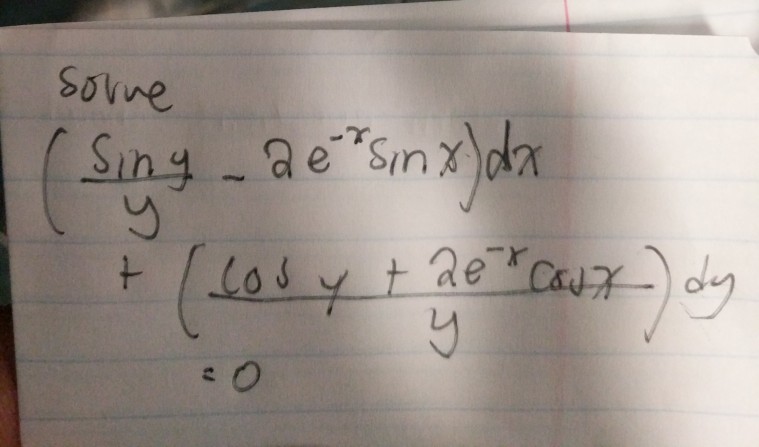 Solve
(sin y / y - 2e^-x sin x) dx
+ (cos y + 2e^-x cos x / y) dy
= 0